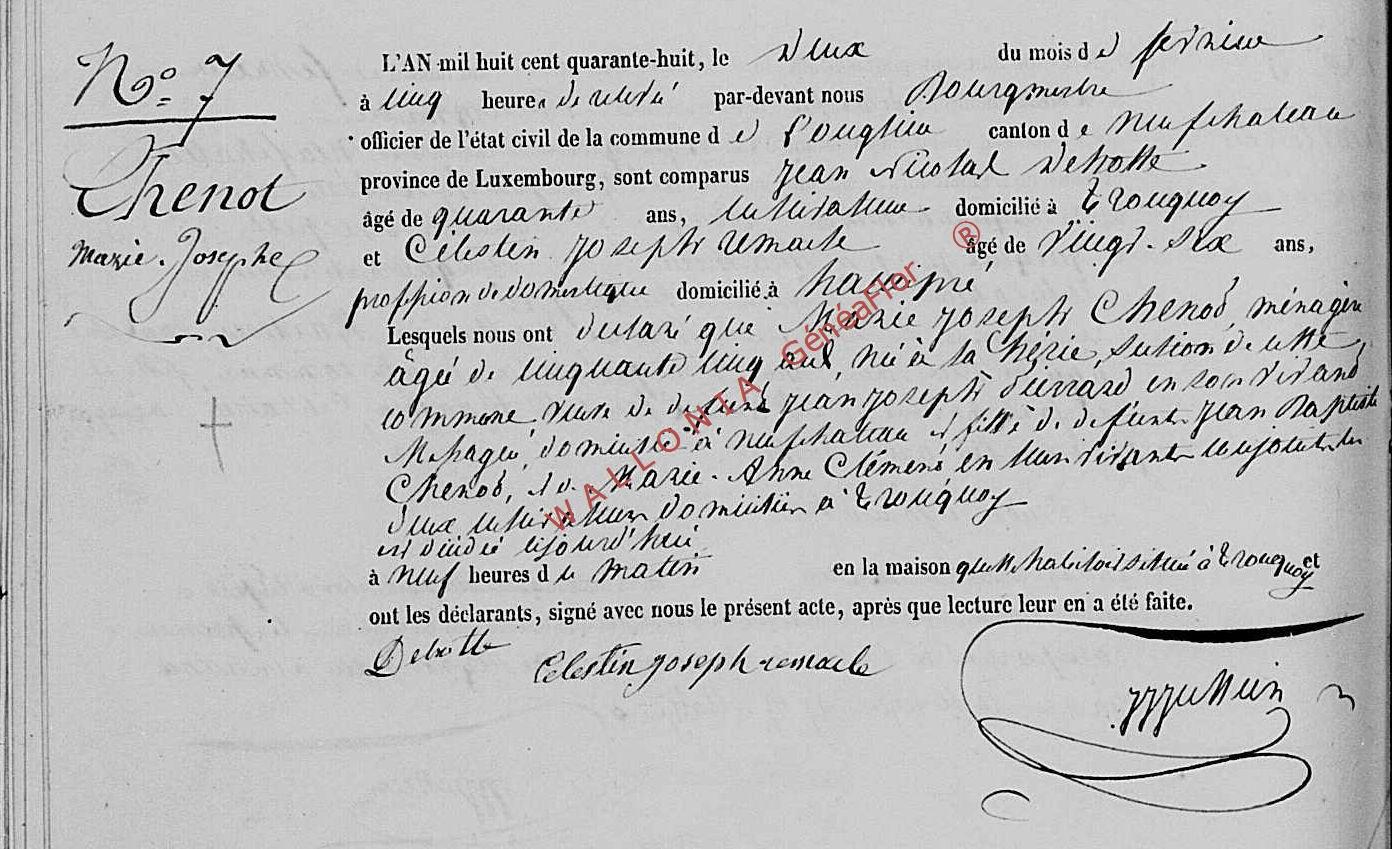 N° 7
Chenot
Marie-Josephe
L'AN mil huit cent quarante-huit, le deux du mois de fevrier
à cinq heures de relevé par-devant nous Bourgmestre
officier de l'état civil de la commune de Longlier canton de neufchateau
province de Luxembourg, sont comparus jean Nicolas Debotte
âgé de quarante ans, cultivateur domicilié à tronquoy
et Célestin joseph remacle âgé de vingt-six ans,
proffsion de domestique domicilié à
Lesquels nous ont declaré que Marie joseph Chenot, ménagère
âgée de cinquante cinq ans, née à la Chérie, section de cette
commune veuve de defunt jean joseph pierrard en son vivant
domiciliée à neufchateau et fille de defunts jean Baptiste
Chenot, et de Marie-Anne Clément en leur vivants conjoints
deux cultivateurs domiciliés à tronquoy
est décédée aujourd'hui
à neuf heures du matin en la maison quelle habitoit située à tronquoy et
ont les déclarants, signé avec nous le présent acte, après que lecture leur en a été faite.
Debotte
Celestin joseph remacle
WALLONIA GénéaFlor ®